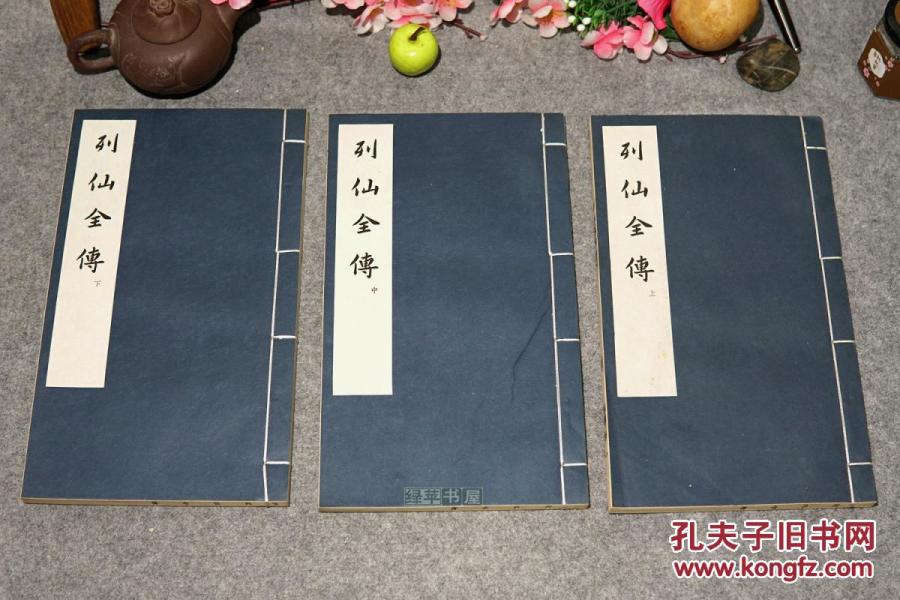 列仙全傳
上
列仙全傳
中
列仙全傳
下
绿苹书屋
孔夫子旧书网
www.kongfz.com